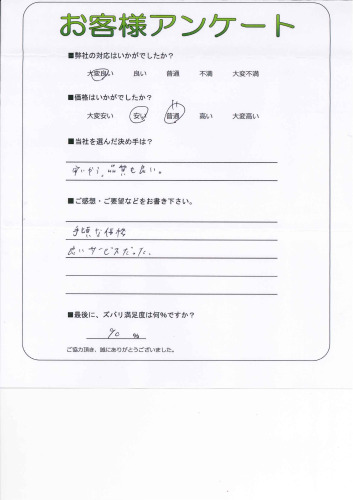 お客様アンケート
■弊社の対応はいかがでしたか？
大変良い 良い 普通 不満 大変不満
■価格はいかがでしたか？
大変安い 安い 普通 高い 大変高い
■当社を選んだ決め手は？
安いが、品質も良い。
■ご感想・ご要望などをお書き下さい。
手頃な価格
良いサービスだった。
■最後に、ズバリ満足度は何％ですか？
90 ％
ご協力頂き、誠にありがとうございました。